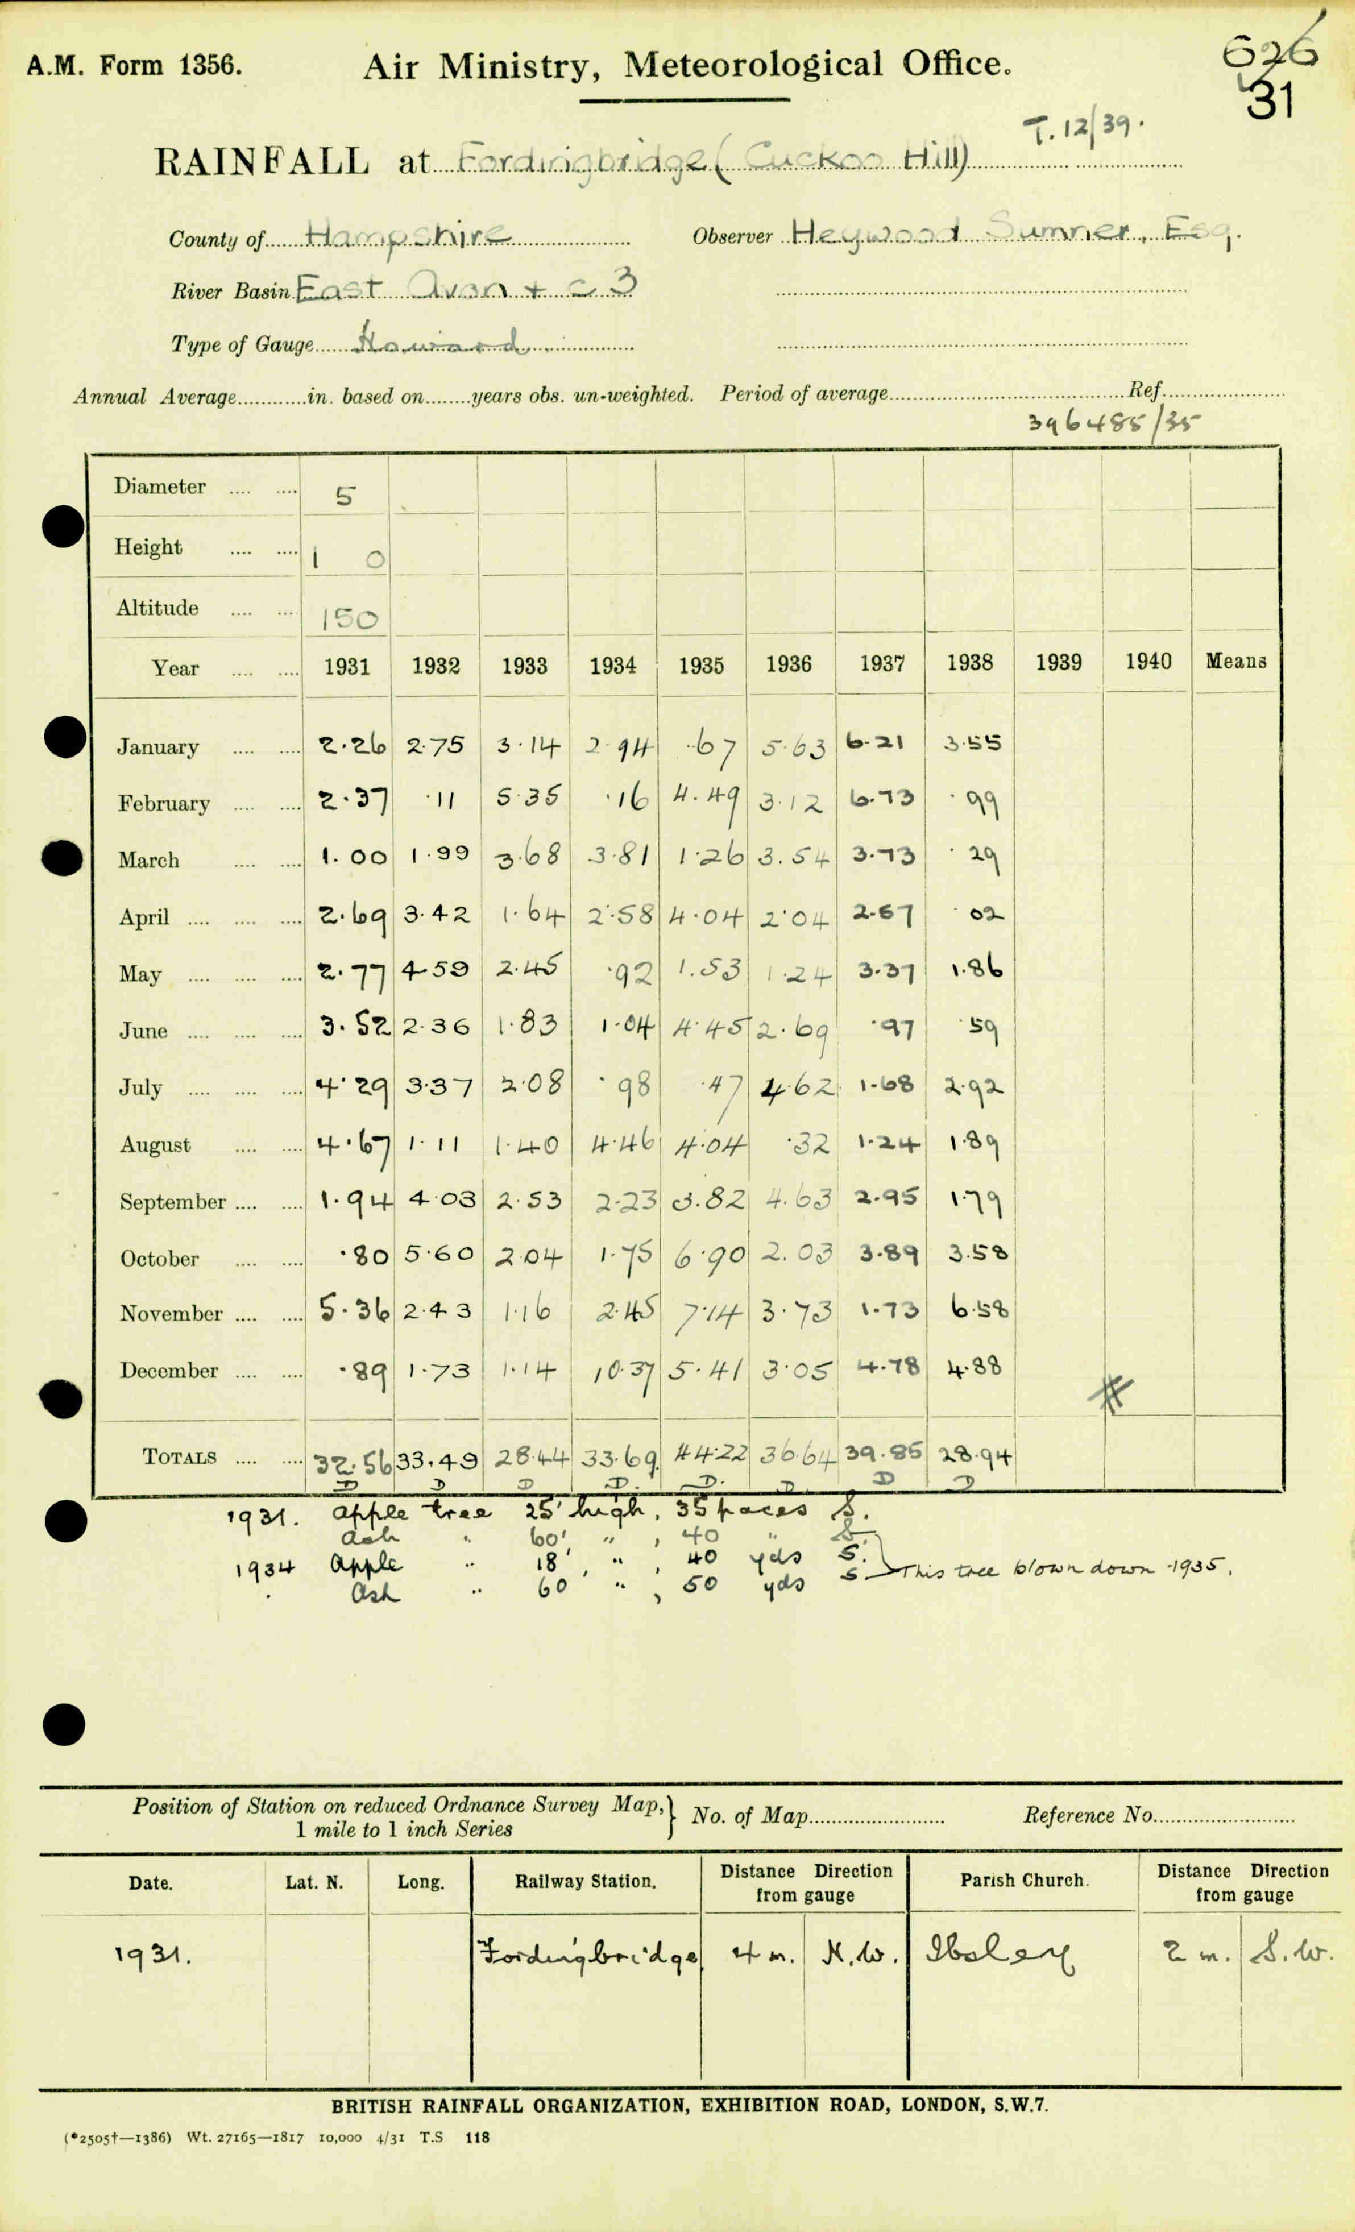 A.M. Form 1356.
Air Ministry, Meteorological Office.
626
31
T. 12/39.
RAINFALL at Fordingbridge (Cuckoo Hill)
County of Hampshire Observer Heywood Sumner, Esq.
River Basin East Avon + c 3
Type of Gauge Howard
Annual Average............in. based on........years obs. un-weighted. Period of average........................................Ref.....................
396485/35
Diameter .... .... 5
Height .... .... 1 0
Altitude .... .... 150
Year .... .... 1931 1932 1933 1934 1935 1936 1937 1938 1939 1940 Means
January .... .... 2.26 2.75 3.14 2.94 .67 5.63 6.21 3.55
February .... .... 2.37 .11 5.35 .16 4.49 3.12 6.73 .99
March .... .... 1.00 1.99 3.68 3.81 1.26 3.54 3.73 .29
April .... .... .... 2.69 3.42 1.64 2.58 4.04 2.04 2.57 .02
May .... .... .... 2.77 4.59 2.45 .92 1.53 1.24 3.37 1.86
June .... .... .... 3.52 2.36 1.83 1.04 4.45 2.69 .97 .59
July .... .... .... 4.29 3.37 2.08 .98 .47 4.62 1.68 2.92
August .... .... 4.67 1.11 1.40 4.46 4.04 .32 1.24 1.89
September .... .... 1.94 4.03 2.53 2.23 3.82 4.63 2.95 1.79
October .... .... .80 5.60 2.04 1.75 6.90 2.03 3.89 3.58
November .... .... 5.36 2.43 1.16 2.45 7.14 3.73 1.73 6.58
December .... .... .89 1.73 1.14 10.37 5.41 3.05 4.78 4.88
TOTALS .... .... 32.56 33.49 28.44 33.69 44.22 36.64 39.85 28.94
D D D D. D. D. D D
1931. Apple tree 25' high, 35 paces S.
Ash " 60', " , 40 " S.
1934 Apple " 18', " , 40 yds S.
Ash " 60 " , 50 yds S This tree blown down 1935.
Position of Station on reduced Ordnance Survey Map, 1 mile to 1 inch Series } No. of Map......................... Reference No..........................
Date. Lat. N. Long. Railway Station. Distance Direction from gauge Parish Church. Distance Direction from gauge
1931. Fordingbridge 4 m. N.W. Ibsley 2 m. S.W.
BRITISH RAINFALL ORGANIZATION, EXHIBITION ROAD, LONDON, S.W.7.
(*2505†—1386) Wt. 27165—1817 10,000 4/31 T.S 118